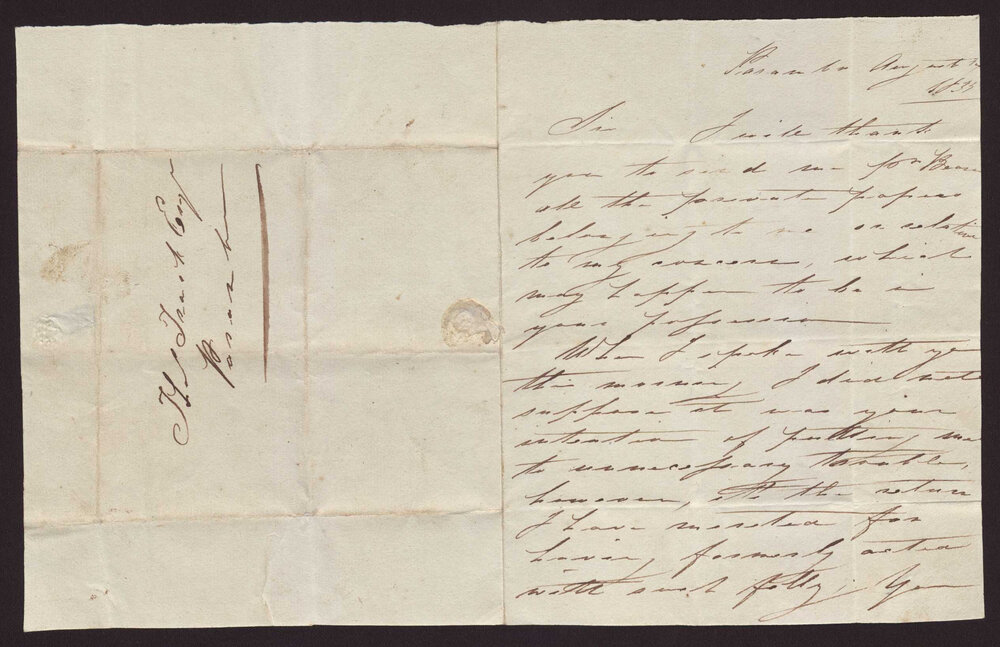 Thos Trust Esqr
August
183
Sir I will thank
you to send me pr Bearer
all the private papers
belonging to me or relative
to my concern, which
may happen to be in
your Possession
When I spoke with yo
this morning I did not
suppose it was your
intention of putting me
to unnecessary trouble,
however, its the return
I have merited for
having formerly acted
with such folly; You